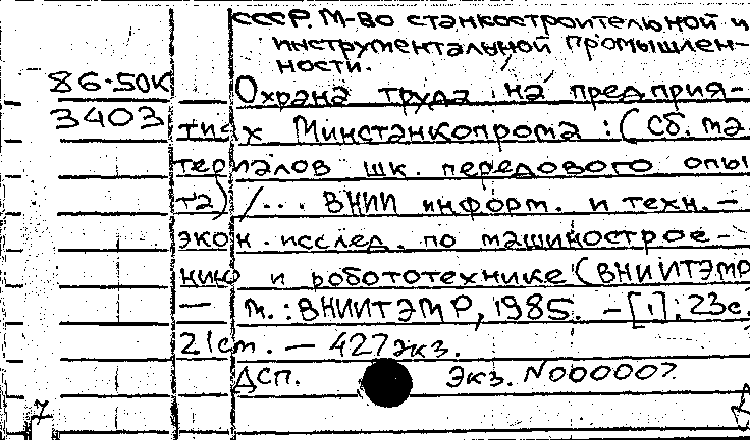 СССР. М-во станкостроительной и
инструментальной промышлен-
ности.
86-50К
3403
Охрана труда на предприя-
тиях Минстанкопрома: (Сб. ма
териалов шк. передового опы
та) /... ВНИИ информ. и техн.-
экон. исслед. по машинострое-
нию и робототехнике (ВНИИТЭМР
— М.: ВНИИТЭМР, 1985. - [1], 23с.
21см. — 427экз.
ДСП. Экз. N000007
7